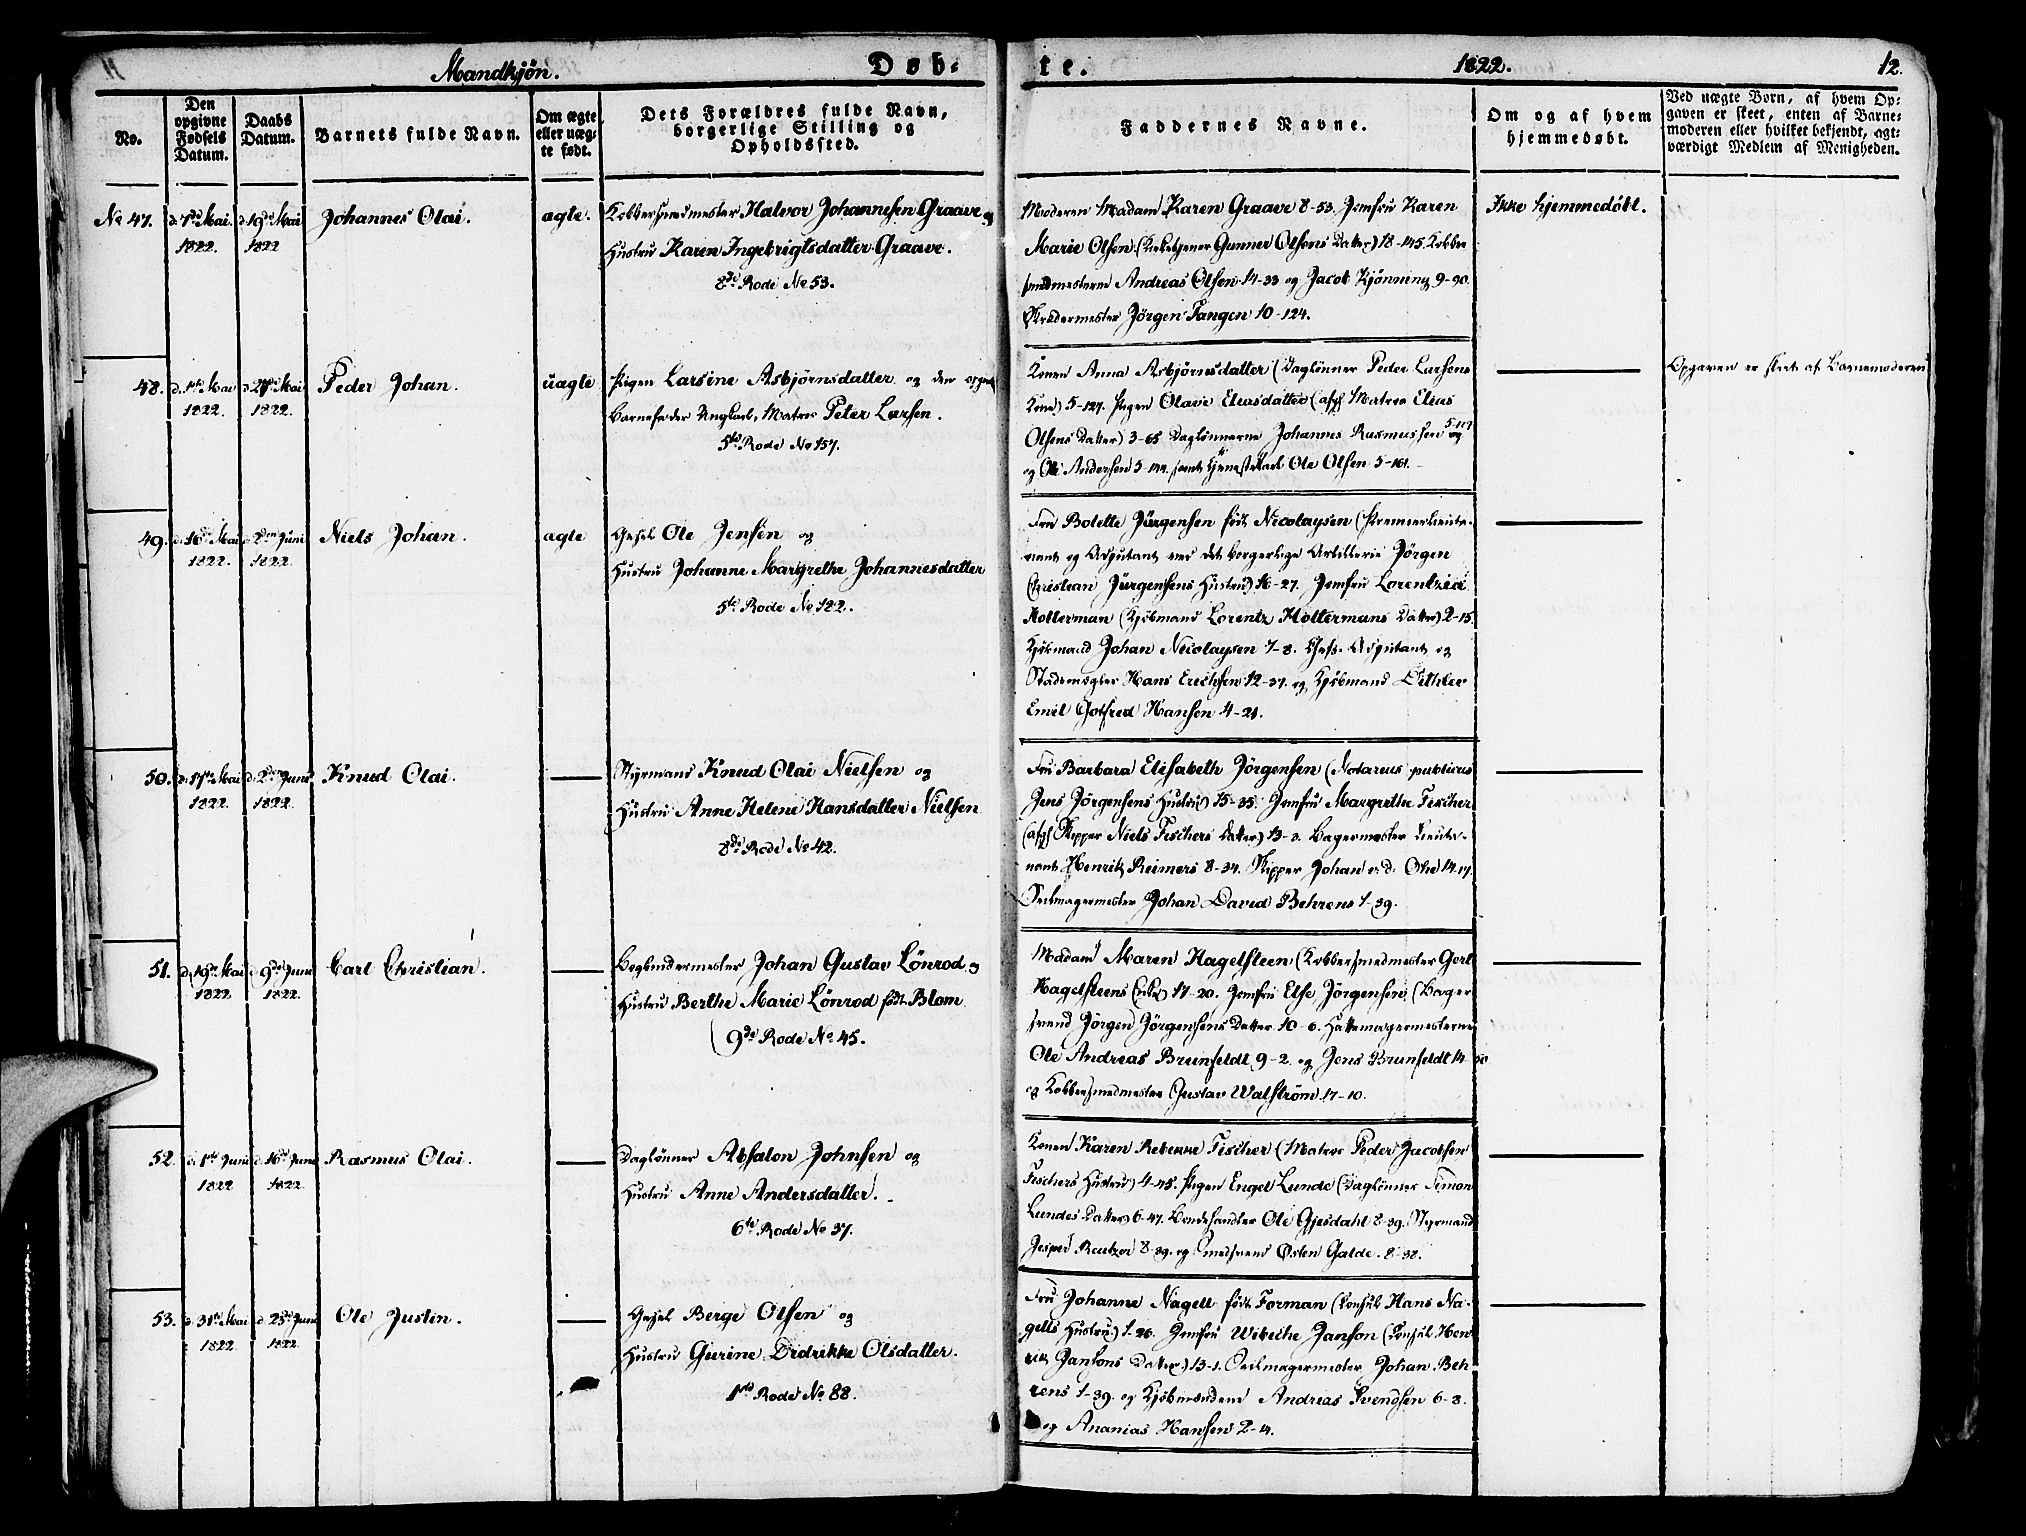 11
Mandkjøn.
Døb-
te.
1822.
12.
No.
Den
opgivne
Fødsels
Datum.
Daabs
Datum.
Barnets fulde Navn.
Om ægte
eller uæg-
te født.
Dets Forældres fulde Navn,
borgerlige Stilling og
Opholdssted.
Faddernes Navne.
Om og af hvem
hjemmedøbt.
Ved uægte Børn, af hvem Op-
gaven er skeet, enten af Barne-
moderen eller hvilket bekjendt, agt-
værdigt Medlem af Menigheden.
No 47.
d. 7de Mai
1822.
d. 19de Mai
1822
Johannes Olai.
ægte.
Kobbersmedmester Halvor Johannesen Graave og
Hustru Karen Ingebrigtsdatter Graave.
8de Rode No 53.
Moderen Madam Karen Graave 8-53. Jomfru Karen
Marie Olsen (Kirketjener Gunner Olsens Datter) 18-145. Kobber
smedmesterne Andreas Olsen 14-33 og Jacob Kjönning 9-90.
Skrædermester Jörgen Fangen 10-124.
Ikke hjemmedöbt.
48.
d. 1ste Mai
1822.
d. 27de Mai
1822.
Peder Johan.
uægte
Pigen Larsine Asbjörnsdatter og den opgivne
Barnefader Ungkarl, Matros Peter Larsen.
5te Rode No 157.
Konen Anna Asbjörnsdatter (Daglönner Peder Larsens
Kone) 5-127. Pigen Olave Eliasdatter (afg. Matros Elias
Olsens Datter) 3-65 Daglönnerne Johannes Rasmussen
og Ole Andersen samt Tjenestekarl Ole Olsen 5-161.
Opgaven er skeet af Barnemoderen
49.
d. 16de Mai
1822.
d. 2den Juni
1822.
Niels Johan.
ægte
Gesel Ole Jensen og
Hustru Johanne Margrethe Johannesdatter
5te Rode No 122.
Fru Bolette Jürgensen födt Nicolaysen (Premierlieute-
nant og Adjutant ved det borgerlige Artillerie Jörgen
Christian Jürgensens Hustru) 16-27. Jomfru Lorentzia
Holterman (Kjöbmand Lorentz Holtermans Datter) 2-15.
Kjöbmand Johan Nicolaysen 7-8. Chefs-Adjutant og
Stadsmægler Hans Erichsen 12-37. og Kjöbmand Dithlev
Emil Gotfred Hansen 4-21.
50.
d. 17de Mai
1822.
d. 2den Juni
1822.
Knud Olai.
Styrmand Knud Olai Nielsen og
Hustru Anne Helene Hansdatter Nielsen
8de Rode No 42.
Fru Barbara Elisabeth Jörgensen (Notarius publicus
Jens Jörgensens Hustru) 15-35. Jomfru Margrethe Fischer
(afg. Skipper Niels Fischers Datter) 13-3. Bagermester Lieute-
nant Henrik Reimers 8-34. Skipper Johan v. d. Ohe 14-17.
Seilmagermester Johan David Behrens 1-39.
51.
d. 19de Mai
1822
d. 9de Juni
1822.
Carl Christian.
Bogbindermester Johan Gustav Lönrod og
Hustru Berthe Marie Lönrod födt Blom
(9de Rode No 45.
Madam Maren Hagelsteen (Kobbersmedmester Gert
Hagelsteens Enke) 17-20. Jomfru Else Jörgensen (Bager
svend Jörgen Jörgensens Datter 10-6. Hattemagermesterne
Ole Andreas Brunfeldt 9-2. og Jens Brunfeldt 14-50
og Kobbersmedmester Gustav Walström 17-10.
52.
d. 1ste Juni
1822
d. 16de Juni
1822
Rasmus Olai.
Daglönner Absalon Johnsen og
Hustru Anne Andersdatter.
6te Rode No 37.
Konen Karen Rebekke Fischer (Matros Peder Jacobsen
Fischers Hustru) 4-45. Pigen Engel Lunde (Daglönner Simon
Lundes Datter) 6-47. Bondehandler Ole Gjesdahl 8-39. Styrmand
Jesper Reutzer 8-39. og Smedsvend Østen Galde. 8-38.
53.
d. 31te Mai
1822
d. 23de Juni
1822.
Ole Justin.
Gesel Berge Olsen og
Hustru Gurine Didrikke Olsdatter.
1ste Rode No 88.
Fru Johanne Nagell födt Forman (Consul Hans Na-
gells Hustru) 1-26. Jomfru Wibeche Janson (Consul Hen
rik Jansons Datter) 13-1. Seilmagermester Johan Beh
rens 1-39. og Kjöbmændene Andreas Svendsen 6-3.
og Ananias Hansen 2-4.